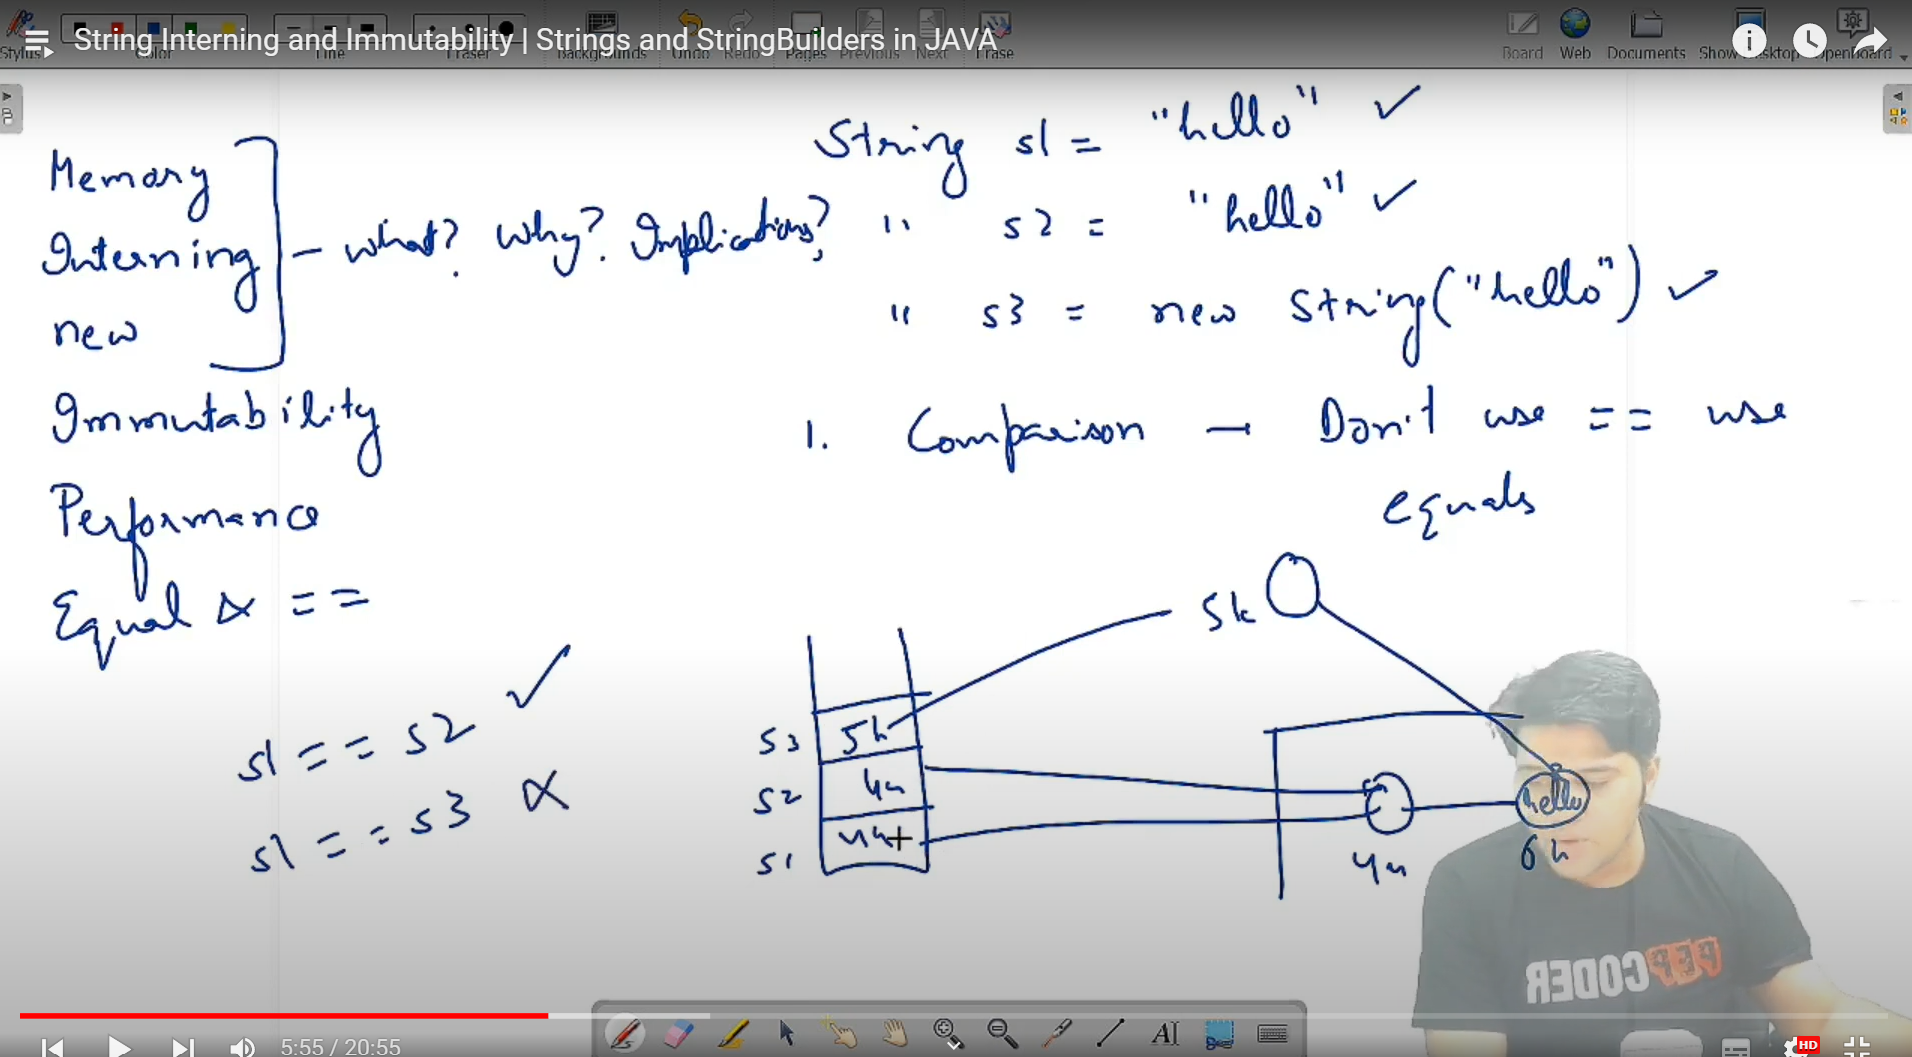 String Interning and Immutability | Strings and StringBuilders in JAVA
Stylus
Color
Line
Eraser
Backgrounds
Undo
Redo
Pages
Previous
Next
Erase
Board
Web
Documents
Show Desktop
OpenBoard
Memory
Interning
new
- what? why? Implications?
Immutability
Performance
Equal & ==
s1 == s2 ✓
s1 == s3 ✗
String s1 = "hello" ✓
" s2 = "hello" ✓
" s3 = new String("hello") ✓
1. Comparison - Don't use == use
equals
5k
s3 5k
s2 4k
s1 4k
4k
hello
6k
PEPCODER
AI
5:55 / 20:55
HD